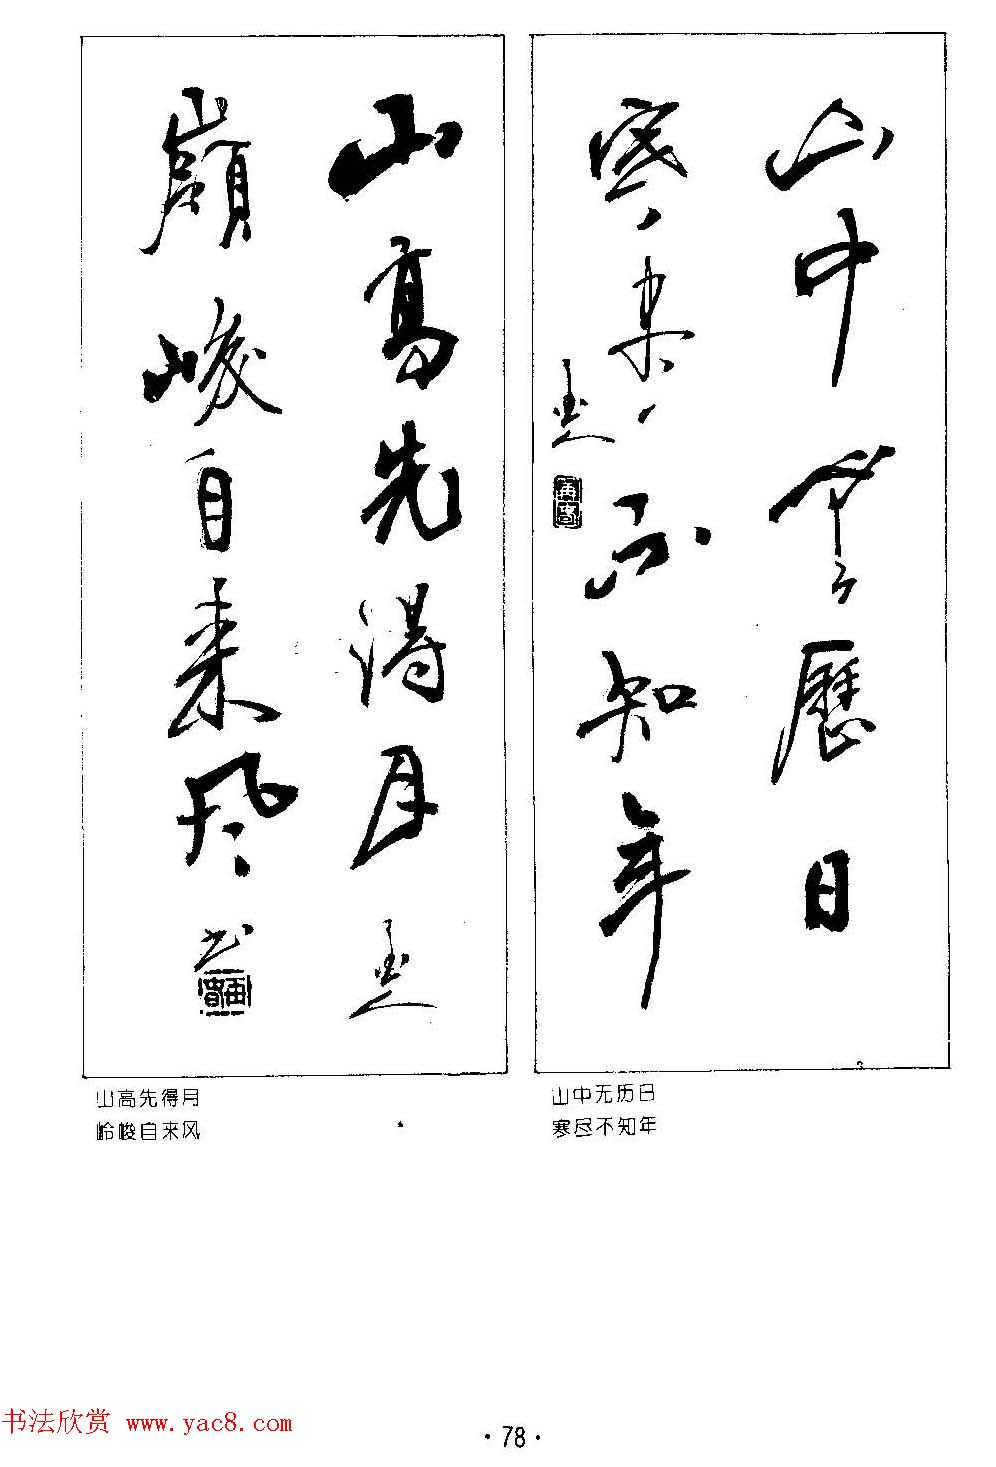 山中无歷日
寒尽不知年
山高先得月
嶺峻自来风
山高先得月
岭峻自来风
山中无历日
寒尽不知年
书法欣赏 www.yac8.com
·78·